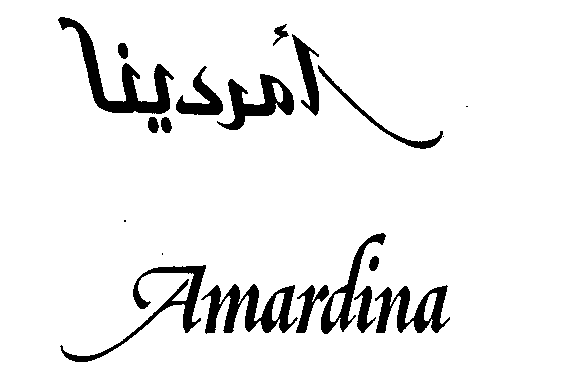 أمردينا
Amardina